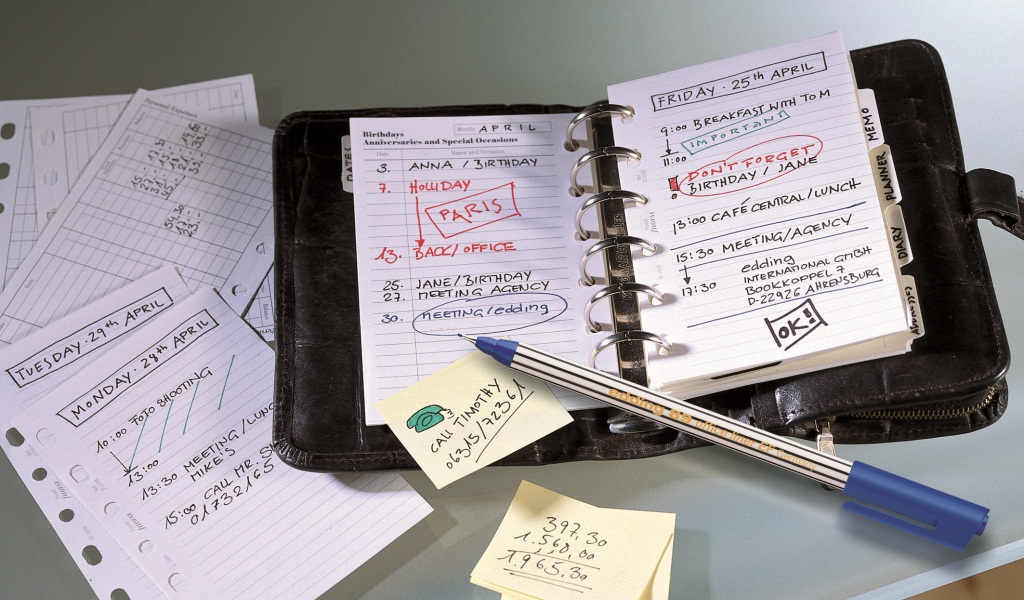 Birthdays
Anniversaries and Special Occasions
Month APRIL
Date Name and Occasion
3. ANNA / BIRTHDAY
7. HOLLIDAY
PARIS
13. BACK/OFFICE
25. JANE/BIRTHDAY
27. MEETING AGENCY
30. MEETING/edding
DATES
FRIDAY · 25th APRIL
9:00 BREAKFAST WITH TOM
IMPORTANT
11:00
DON'T FORGET
BIRTHDAY / JANE
13:00 CAFÉ CENTRAL/LUNCH
15:30 MEETING/AGENCY
17:30
edding
INTERNATIONAL GMBH
BOOKKOPPEL 7
D-22926 AHRENSBURG
OK!
MEMO
PLANNER
DIARY
ADDRESSES
Personal Expenses
TUESDAY · 29th APRIL
MONDAY · 28th APRIL
10:00 FOTO SHOOTING
13:00
13:30 MEETING/LUNC
MIKE'S
CALL MR. S
15:00 01732165
CALL TIMOTHY
06315/72361
edding 88 office liner EF
397,30
1.568,00
1.965,30